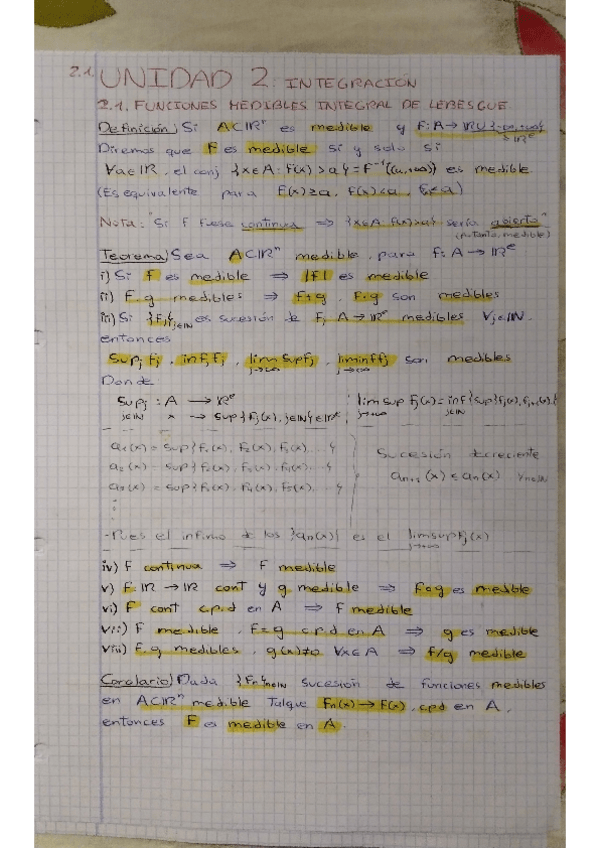 2.1. UNIDAD 2: INTEGRACIÓN
2.1. FUNCIONES MEDIBLES INTEGRAL DE LEBESGUE
Definición) Si A⊂ℝⁿ es medible y f: A→ ℝ∪{-∞,+∞}
=ℝᵉ
Diremos que f es medible si y solo si
∀a∈ℝ, el conj {x∈A: f(x)>a} = f⁻¹((a,+∞)) es medible.
(Es equivalente para f(x)≥a, f(x)<a, f≤a)
Nota: "Si f fuese continua ⇒ {x∈A: f(x)>a} sería abierto"
(por tanto, medible)
Teorema) Sea A⊂ℝⁿ medible, para f: A→ℝᵉ
i) Si f es medible ⇒ |f| es medible
ii) f, g medibles ⇒ f+g, f·g son medibles
iii) Si {fⱼ}j∈ℕ es sucesión de fⱼ A→ℝᵉ medibles ∀j∈ℕ.
entonces
supⱼ fⱼ, infⱼ fⱼ, lim sup fⱼ, lim inf fⱼ son medibles
j→∞ j→∞
Donde
supⱼ : A → ℝᵉ lim sup fⱼ(x) = inf {sup{fⱼ(x), fⱼ₊₁(x),
j∈ℕ x → sup{fⱼ(x), j∈ℕ}∈ℝᵉ j→∞ j∈ℕ
a₁(x) = sup{f₁(x), f₂(x), f₃(x), ...}
a₂(x) = sup{f₂(x), f₃(x), f₄(x), ...}
a₃(x) = sup{f₃(x), f₄(x), f₅(x), ...}
Sucesión decreciente
aₙ₊₁(x) ≤ aₙ(x) ∀n∈ℕ
⋮
- Pues el infimo de los {aₙ(x)} es el lim sup fⱼ(x)
j→∞
iv) f continua ⇒ f medible
v) f: ℝ→ℝ cont y g medible ⇒ f∘g es medible
vi) f cont c.p.d en A ⇒ f medible
vii) f medible, f=g c.p.d en A ⇒ g es medible
viii) f, g medibles, g(x)≠0 ∀x∈A ⇒ f/g medible
Corolario) Dada {fₙ}n∈ℕ sucesión de funciones medibles
en A⊂ℝⁿ medible. Tal que fₙ(x)→f(x), cpd en A,
entonces f es medible en A.